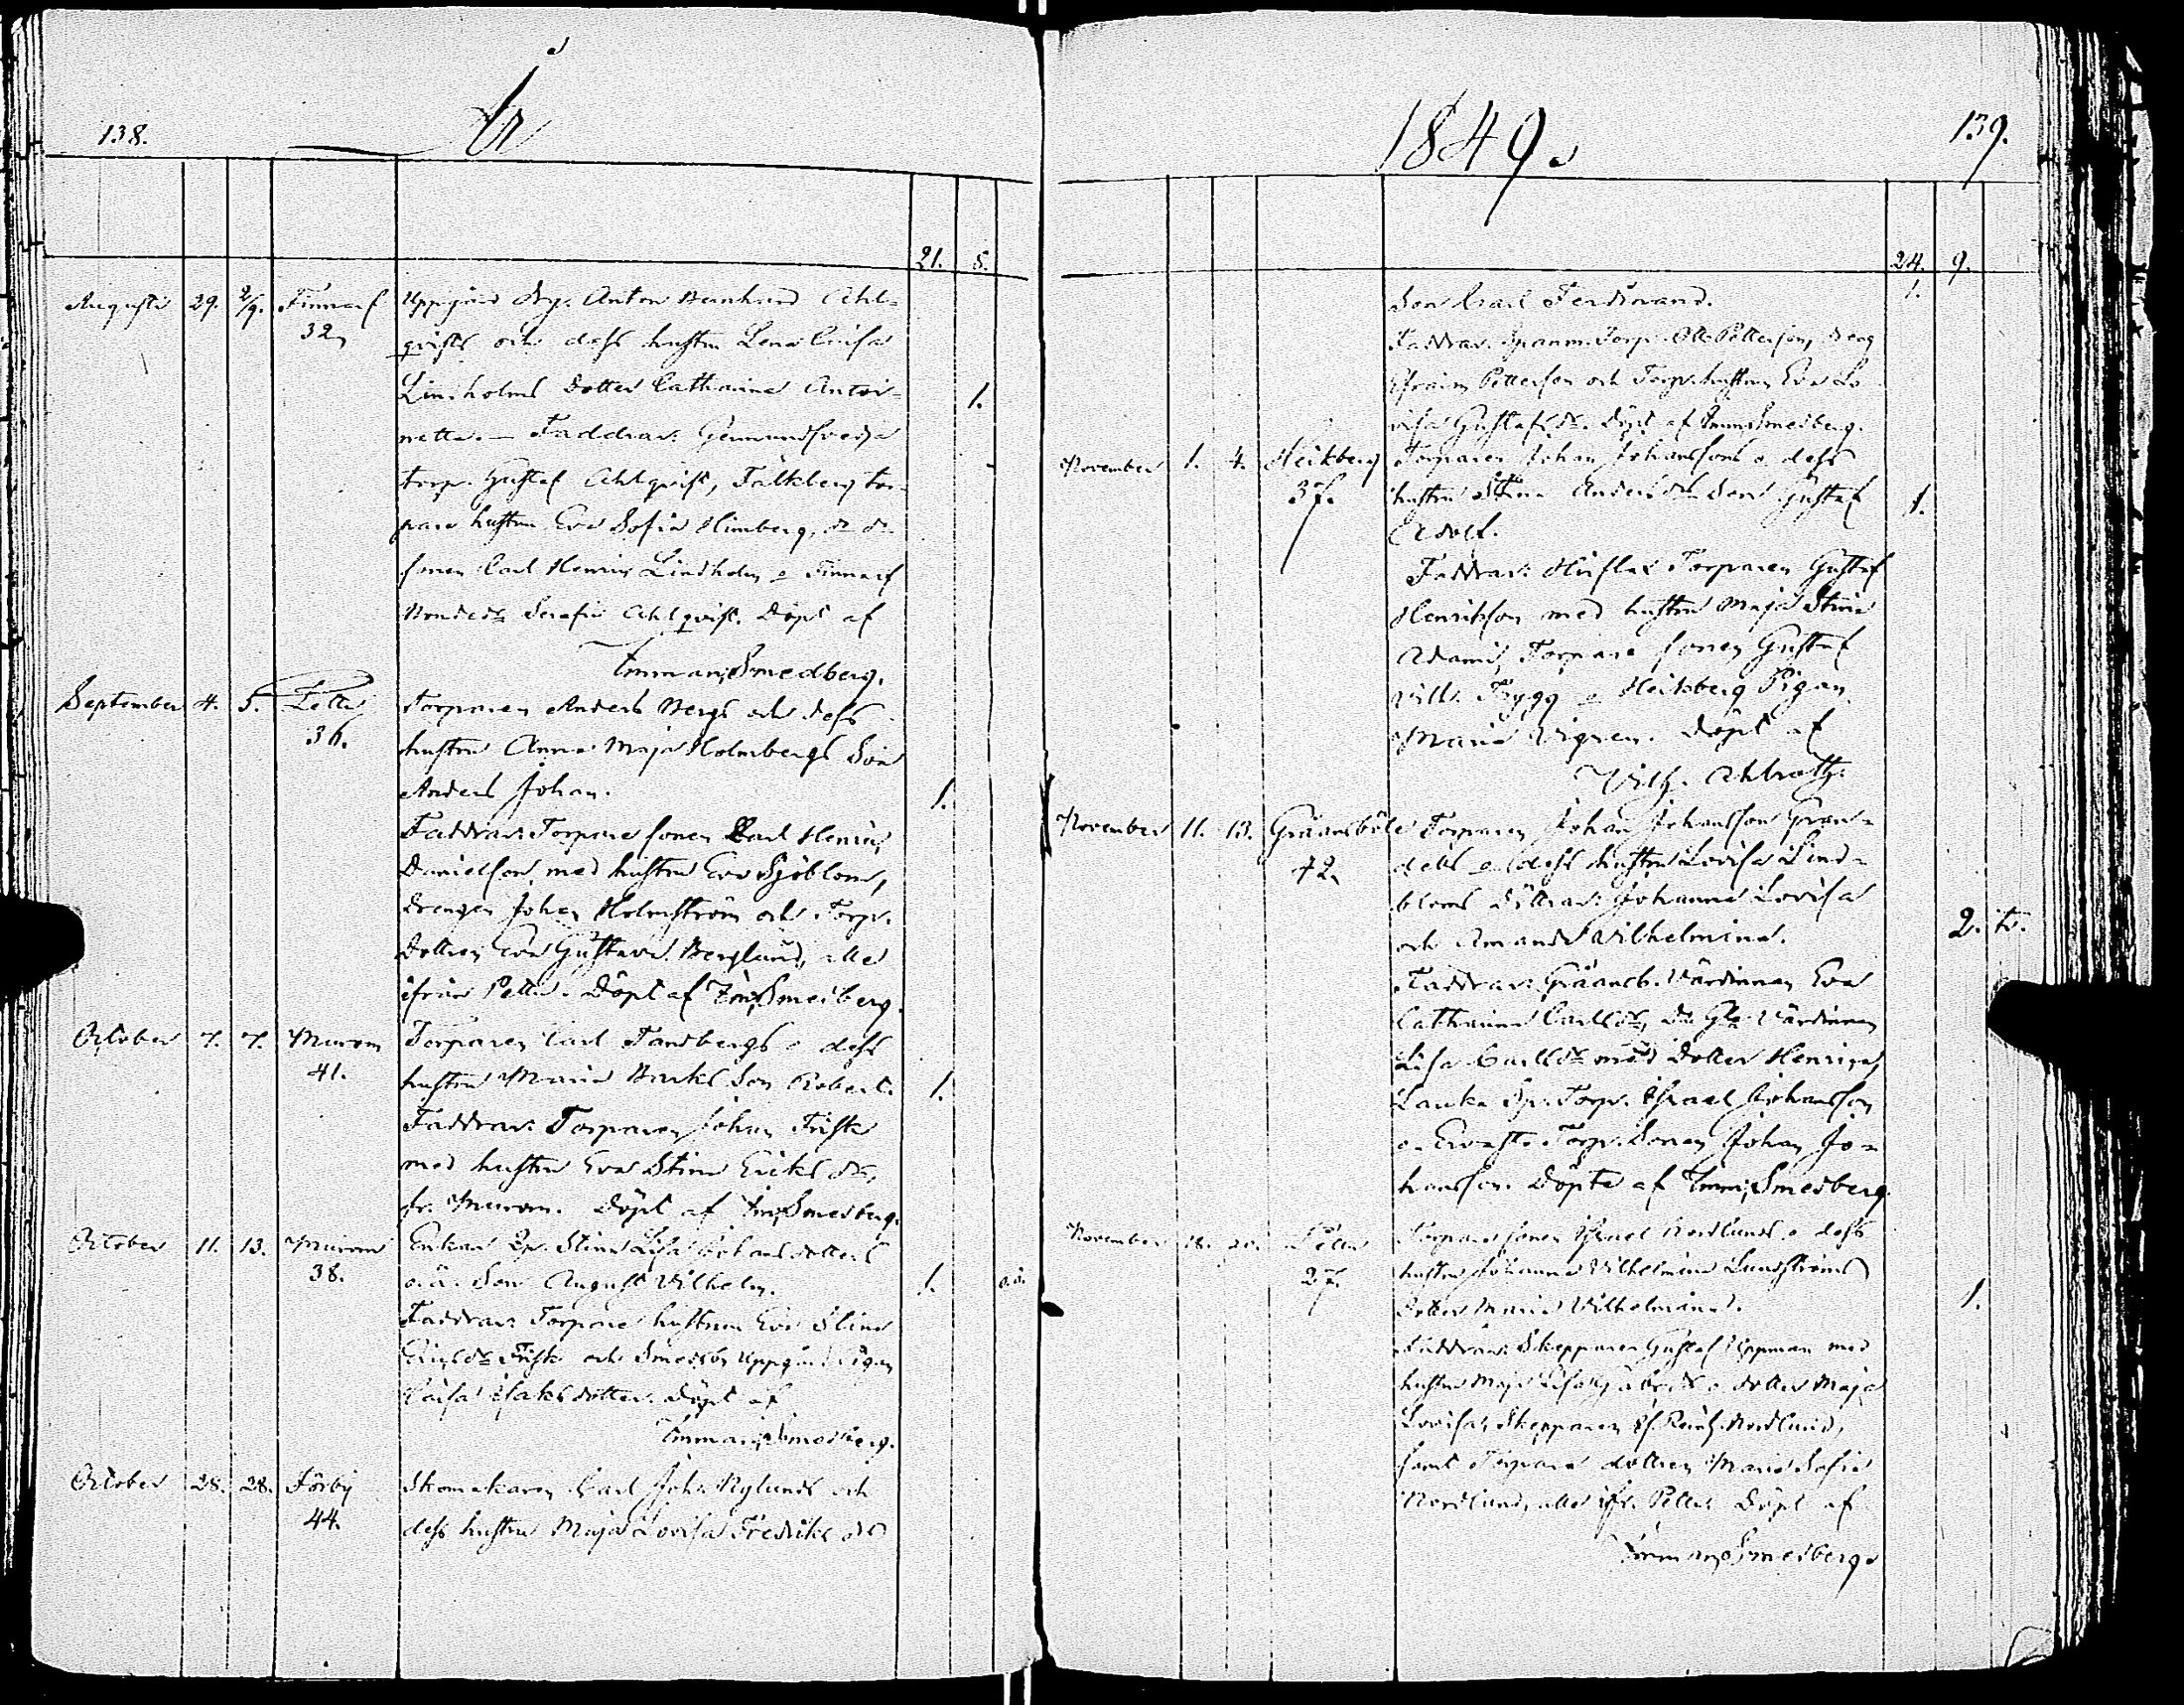 138.
År
21. 5.
Augusti 29. 2/9. Finnarf Uppgård Drg. Anton Bernhard Ahl-
32, qvists och dess hustru Lena Caisa
Lindholms dotter Catharina Antoi- 1.
netta. — Faddrar: Germundsvedja
torp. Gustaf Ahlqvist, Falkberg tor-
pare hustrun Eva Sofia Himberg, d:o d:o
sonen Carl Henric Lindholm o Finnarf
Bonded:r Serafia Ahlqvist. Döpt af
Imman. Smedberg.
September 4. 5. Pettu Torparen Anders Bergs och dess
36. hustru Anna Maja Holmbergs Son
Anders Johan. 1.
Faddrar: Torpare sonen Carl Henric
Danielson med hustru Eva Sjöblom,
Drengen Johan Holmström och Torp.
dottren Eva Gustava Berglund, alla
ifrån Pettu. Döpt af Im. Smedberg.
October 7. 7. Murom Torparen Carl Tandbergs o dess
41. hustru Maria Barks Son Robert. 1.
Faddrar: Torparen Johan Frisk
med hustru Eva Stina Ericsd:r,
fr. Murom. Döpt af Im. Smedberg.
October 11. 13. Murom Enkan Sp. Stina Lisa Johansdotters
38. o.ä. Son August Vilhelm. 1. o.ä.
Faddrar: Torpare hustrun Eva Stina
Ericsd:r Frisk och Smedsby Uppgård Pigan
Caisa Isaksdotter. Döpt af
Imman. Smedberg.
October 28. 28. Förby Skomakaren Carl Joh. Nylunds och
44. dess hustru Maja Lovisa Fredriksd:r
1849.
139.
24. 9.
Son Carl Ferdinand. 1.
Faddrar: Spanm. Torp. Otto Petterson, Dreng
Efraim Petterson och Torp. hustrun Eva Lo-
visa Gustafsd:r. Döpt af Imm. Smedberg.
November 1. 4. Heikberg Torparen Johan Johanssons o dess
37. hustru Stina Andersd:rs Son Gustaf 1.
Adolf.
Faddrar: Torparen Gustaf
Henrikson med hustru Maja Stina
Adamsd:r, Torpare sonen Gustaf
Vilh. Trygg o Heikberg Pigan
Maria Vigren. Döpt af
Vilh. Ahlroth.
November 11. 13. Gråansböle Torparen Johan Johansson Gran-
42. dells o dess hustru Lovisa Lind-
bloms Döttrar: Johanna Lovisa
och Amanda Vilhelmina. 2. tv.
Faddrar: Gråansb. Värdinnan Eva
Catharina Carlsd:r, D:o Gla Värdinnan
Lisa Carlsd:r med Dotter Henrica,
Lauka Sp. Torp. Israel Johansson
o Torp. Sonen Johan Jo-
hansson. Döpte af Imm. Smedberg.
November 18. 20. Pettu Torpare sonen Israel Nordlunds o dess
27. hustru Johanna Vilhelmina Lundströms
Dotter Maria Vilhelmina. 1.
Faddrar: Skepparen Gustaf Uppman med
hustru Maja Lisa o dotter Maja
Lovisa, Skepparen Nordlund,
samt Torpare dottren Maria Sofia
Nordlund, alla ifr. Pettu. Döpt af
Imman. Smedberg.